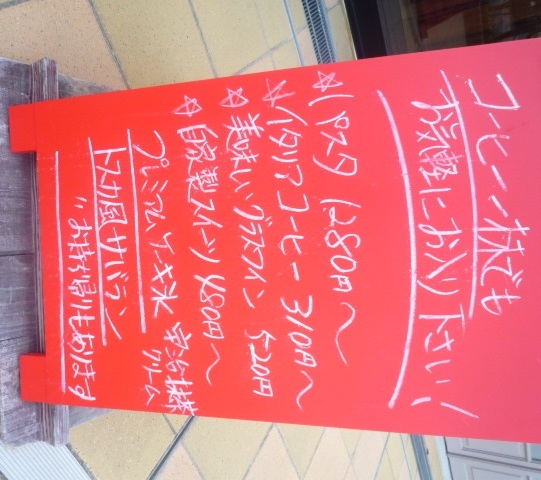 コーヒー一杯でも
お気軽にお入り下さい!
☆パスタ 1280円〜
☆イタリアコーヒー 310円〜
☆美味しいグラスワイン 520円
☆自家製スイーツ 480円〜
プレミアムケーキ氷 宇治抹茶クリーム
トスカ風サバラン
"お持ち帰りもあります